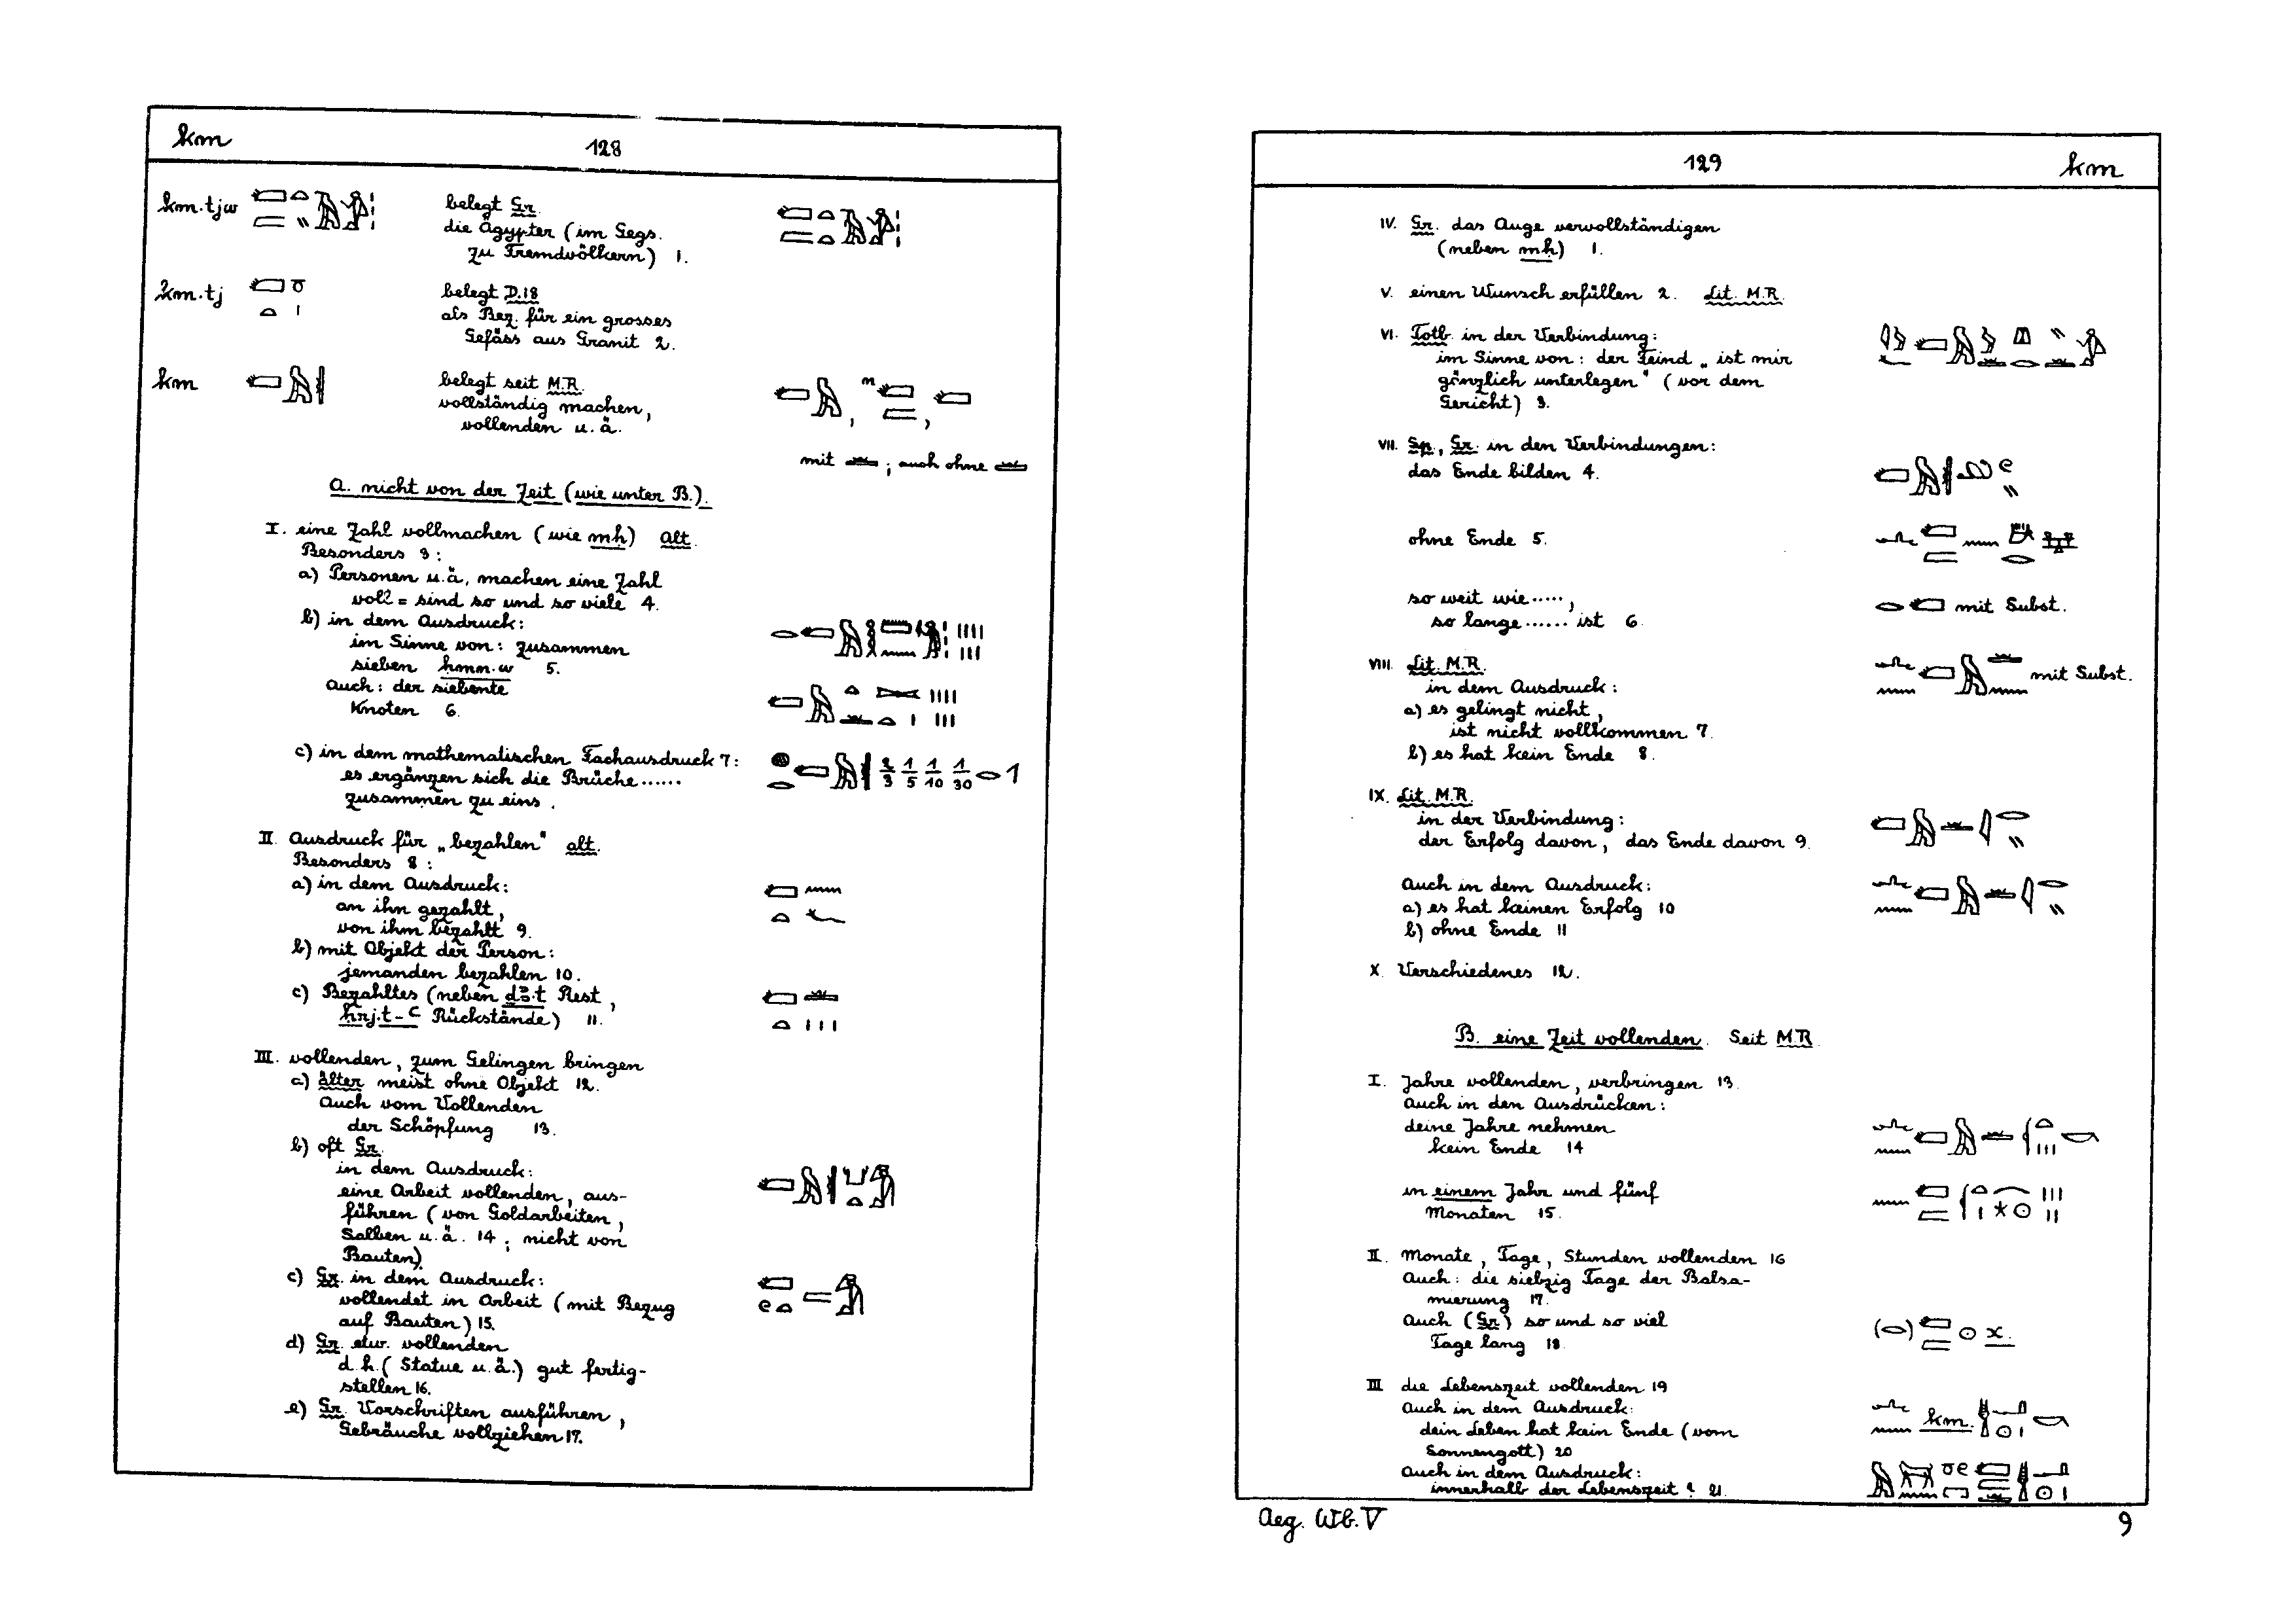 km
128
km·tjw
belegt Gr.
die Ägypter (im Gegs.
zu Fremdvölkern) 1.
km·tj
belegt D.18
als Bez. für ein grosses
Gefäss aus Granit 2.
km
belegt seit M.R.
vollständig machen,
vollenden u.ä.
mit ; auch ohne
A. nicht von der Zeit (wie unter B.).
I. eine Zahl vollmachen (wie mḥ) alt.
Besonders 3:
a) Personen u.ä. machen eine Zahl
voll = sind so und so viele 4.
b) in dem Ausdruck:
im Sinne von: zusammen
sieben ḫmn.w 5.
Auch: der siebente
Knoten 6.
c) in dem mathematischen Fachausdruck 7:
es ergänzen sich die Brüche......
zusammen zu eins.
2/3 1/5 1/10 1/30 1
II. Ausdruck für „bezahlen" alt.
Besonders 8:
a) in dem Ausdruck:
an ihn gezahlt,
von ihm bezahlt 9.
b) mit Objekt der Person:
jemanden bezahlen 10.
c) Bezahltes (neben Rest,
Rückstände) 11.
III. vollenden, zum Gelingen bringen
a) älter meist ohne Objekt 12.
Auch vom Vollenden
der Schöpfung 13.
b) oft Gr.
in dem Ausdruck:
eine Arbeit vollenden, aus-
führen (von Goldarbeiten,
Salben u.ä. 14; nicht von
Bauten)
c) Gr. in dem Ausdruck:
vollendet in Arbeit (mit Bezug
auf Bauten) 15.
d) Gr. etw. vollenden
d.h. (Statue u.ä.) gut fertig-
stellen 16.
e) Gr. Vorschriften ausführen,
Gebräuche vollziehen 17.
129
km
IV. Gr. das Auge vervollständigen
(neben mḥ) 1.
V. einen Wunsch erfüllen 2. Lit. M.R.
VI. Totb. in der Verbindung:
im Sinne von: der Feind „ist mir
gänzlich unterlegen" (vor dem
Gericht) 3.
VII. Sp., Gr. in den Verbindungen:
das Ende bilden 4.
ohne Ende 5.
so weit wie.....,
so lange...... ist 6.
mit Subst.
VIII. Lit. M.R.
in dem Ausdruck:
mit Subst.
a) es gelingt nicht,
ist nicht vollkommen 7.
b) es hat kein Ende 8.
IX. Lit. M.R.
in der Verbindung:
der Erfolg davon, das Ende davon 9.
Auch in dem Ausdruck:
a) es hat keinen Erfolg 10
b) ohne Ende 11
X. Verschiedenes 12.
B. eine Zeit vollenden. Seit M.R
I. Jahre vollenden, verbringen 13.
Auch in den Ausdrücken:
deine Jahre nehmen
kein Ende 14
in einem Jahr und fünf
Monaten 15.
II. Monate, Tage, Stunden vollenden 16
Auch: die siebzig Tage der Balsa-
mierung 17.
Auch (Gr.) so und so viel
Tage lang 18.
x.
III die Lebenszeit vollenden 19
Auch in dem Ausdruck:
dein Leben hat kein Ende (vom
Sonnengott) 20
km.
Auch in dem Ausdruck:
innerhalb der Lebenszeit ? 21.
Aeg. Wb. V
9